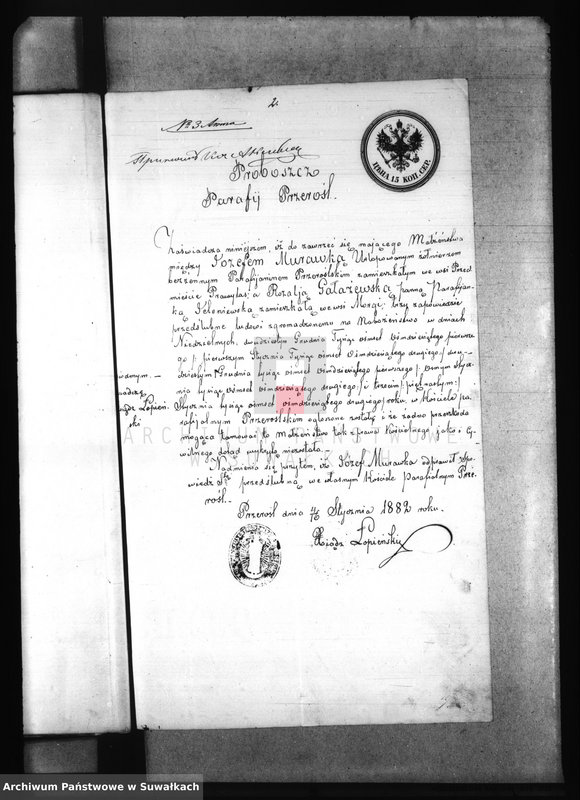 2.
№ 3 Анна
Proboszcz
Parafij Przerośl.
ЦѢНА 15 КОП. СЕР.
Zaświadcza niniejszem, iż do zawrzeć się mającego Małżeństwa
między Józefem Murawką Urlopowanym żołnierzem
bezżennym Parafijaninem Przeroślskim zamieszkałym we wsi Przed
mieście a Rozalją Gałażewską panną Parafijan-
ką Jeleniewską zamieszkałą we wsi Morgi, trzy zapowiedzie
przedślubne ludowi zgromadzonemu na Nabożeństwo w dniach
Niedzielnych, Grudnia Tysiąc ośmset ośmdziesiątego pierwsze
go / pierwszym Stycznia Tysiąc ośmset ośmdziesiątego drugiego / dru-
Grudnia tysiąc ośmset ośmdziesiątego pierwszego / ósmym Stycz-
nia tysiąc ośmset ośmdziesiątego drugiego / i trzecim / piętnastym /
Stycznia tysiąc ośmset ośmdziesiątego drugiego roku, w Kościele pa-
rafijalnym Przeroślskim ogłoszone zostały i że żadna przeszkoda
mogąca tamować to małżeństwo tak z prawa Kościelnego jako i Cy-
wilnego dotąd wykrytą niezostała.
Nadmienia się przytem, że Józef Murawka odprawił Spo-
wiedź Stą przedślubną we własnym Kościele Parafijalnym Prze-
rośl.
Przerośl dnia Stycznia 1882 roku.
Ksiądz Łopieński
wanym. -
iądz Łopień.
ski
Archiwum Państwowe w Suwałkach